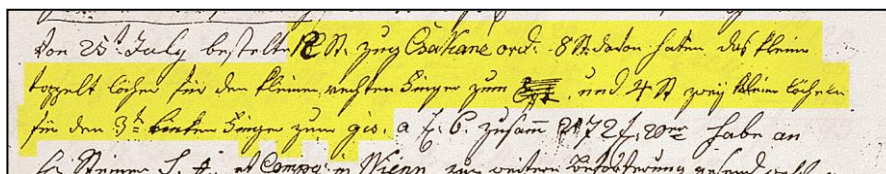 von 25t July bestelte 12 St. zug Csakane ord. 8 St. davon haben das kleine
toppelt löcher für den kleinen rechten Finger zum und 4 St zwey kleine löcheln
für den 3t linken Finger zum gis. a f. 6. zusamm 72 f. habe an
Steiner et Comp: in Wienn zur weitern Beförderung